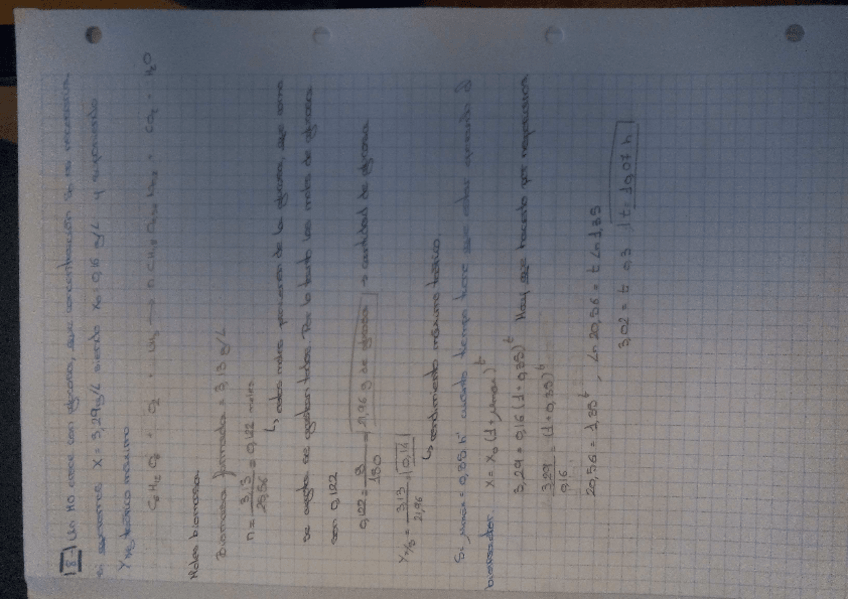 8.- Un MO crece con glucosa, que concentración S₀ es necesaria
si queremos X = 3,29 g/L siendo X₀ = 0,16 g/L y suponiendo
Y teórico máximo
C₆H₁₂O₆ + O₂ + NH₃ → CO₂ + H₂O
Moles biomasa
Biomasa formada = 3,13 g/L
n = 3,13 / = 0,122 moles
↳ estos moles provienen de la glucosa, que como
se agota se gastan todos. Por lo tanto los moles de glucosa
son 0,122
0,122 = g / 180 = 21,96 g de glucosa → cantidad de glucosa
Y x/s = 3,13 / 21,96 = 0,14
↳ rendimiento máximo teórico
Si μmax = 0,35 h⁻¹ cuánto tiempo tiene que estar operando el
X = X₀ (1 + μmax)ᵗ
3,29 = 0,16 (1 + 0,35)ᵗ Hay que hacerlo por
3,29 / 0,16 = (1 + 0,35)ᵗ
20,56 = 1,35ᵗ , Ln 20,56 = t Ln 1,35
3,02 = t 0,3 , t = 10,07 h